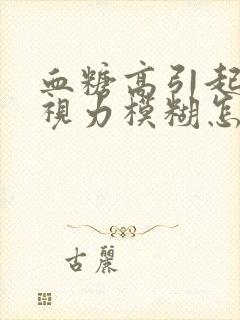 血糖高引起
視力模糊怎
古麗